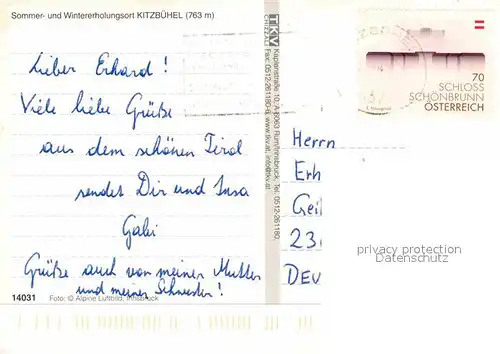 Sommer- und Wintererholungsort KITZBÜHEL (763 m)
Lieber Erhard!
Viele liebe Grüße
aus dem schönen Tirol
sendet Dir und Insa
Gabi
Grüße auch von meiner Mutter
und meiner Schwester!
14031 Foto: © Alpine Luftbild, Innsbruck
TKV
Kaplanstraße 10, A-6063 Rum/Innsbruck, Tel. 0512-261180,
Fax: 0512-261180-8, www.tkv.at, info@tkv.at
70
SCHLOSS
SCHÖNBRUNN
ÖSTERREICH
Herrn
Erh
Geil
23
DEU
privacy protection
Datenschutz